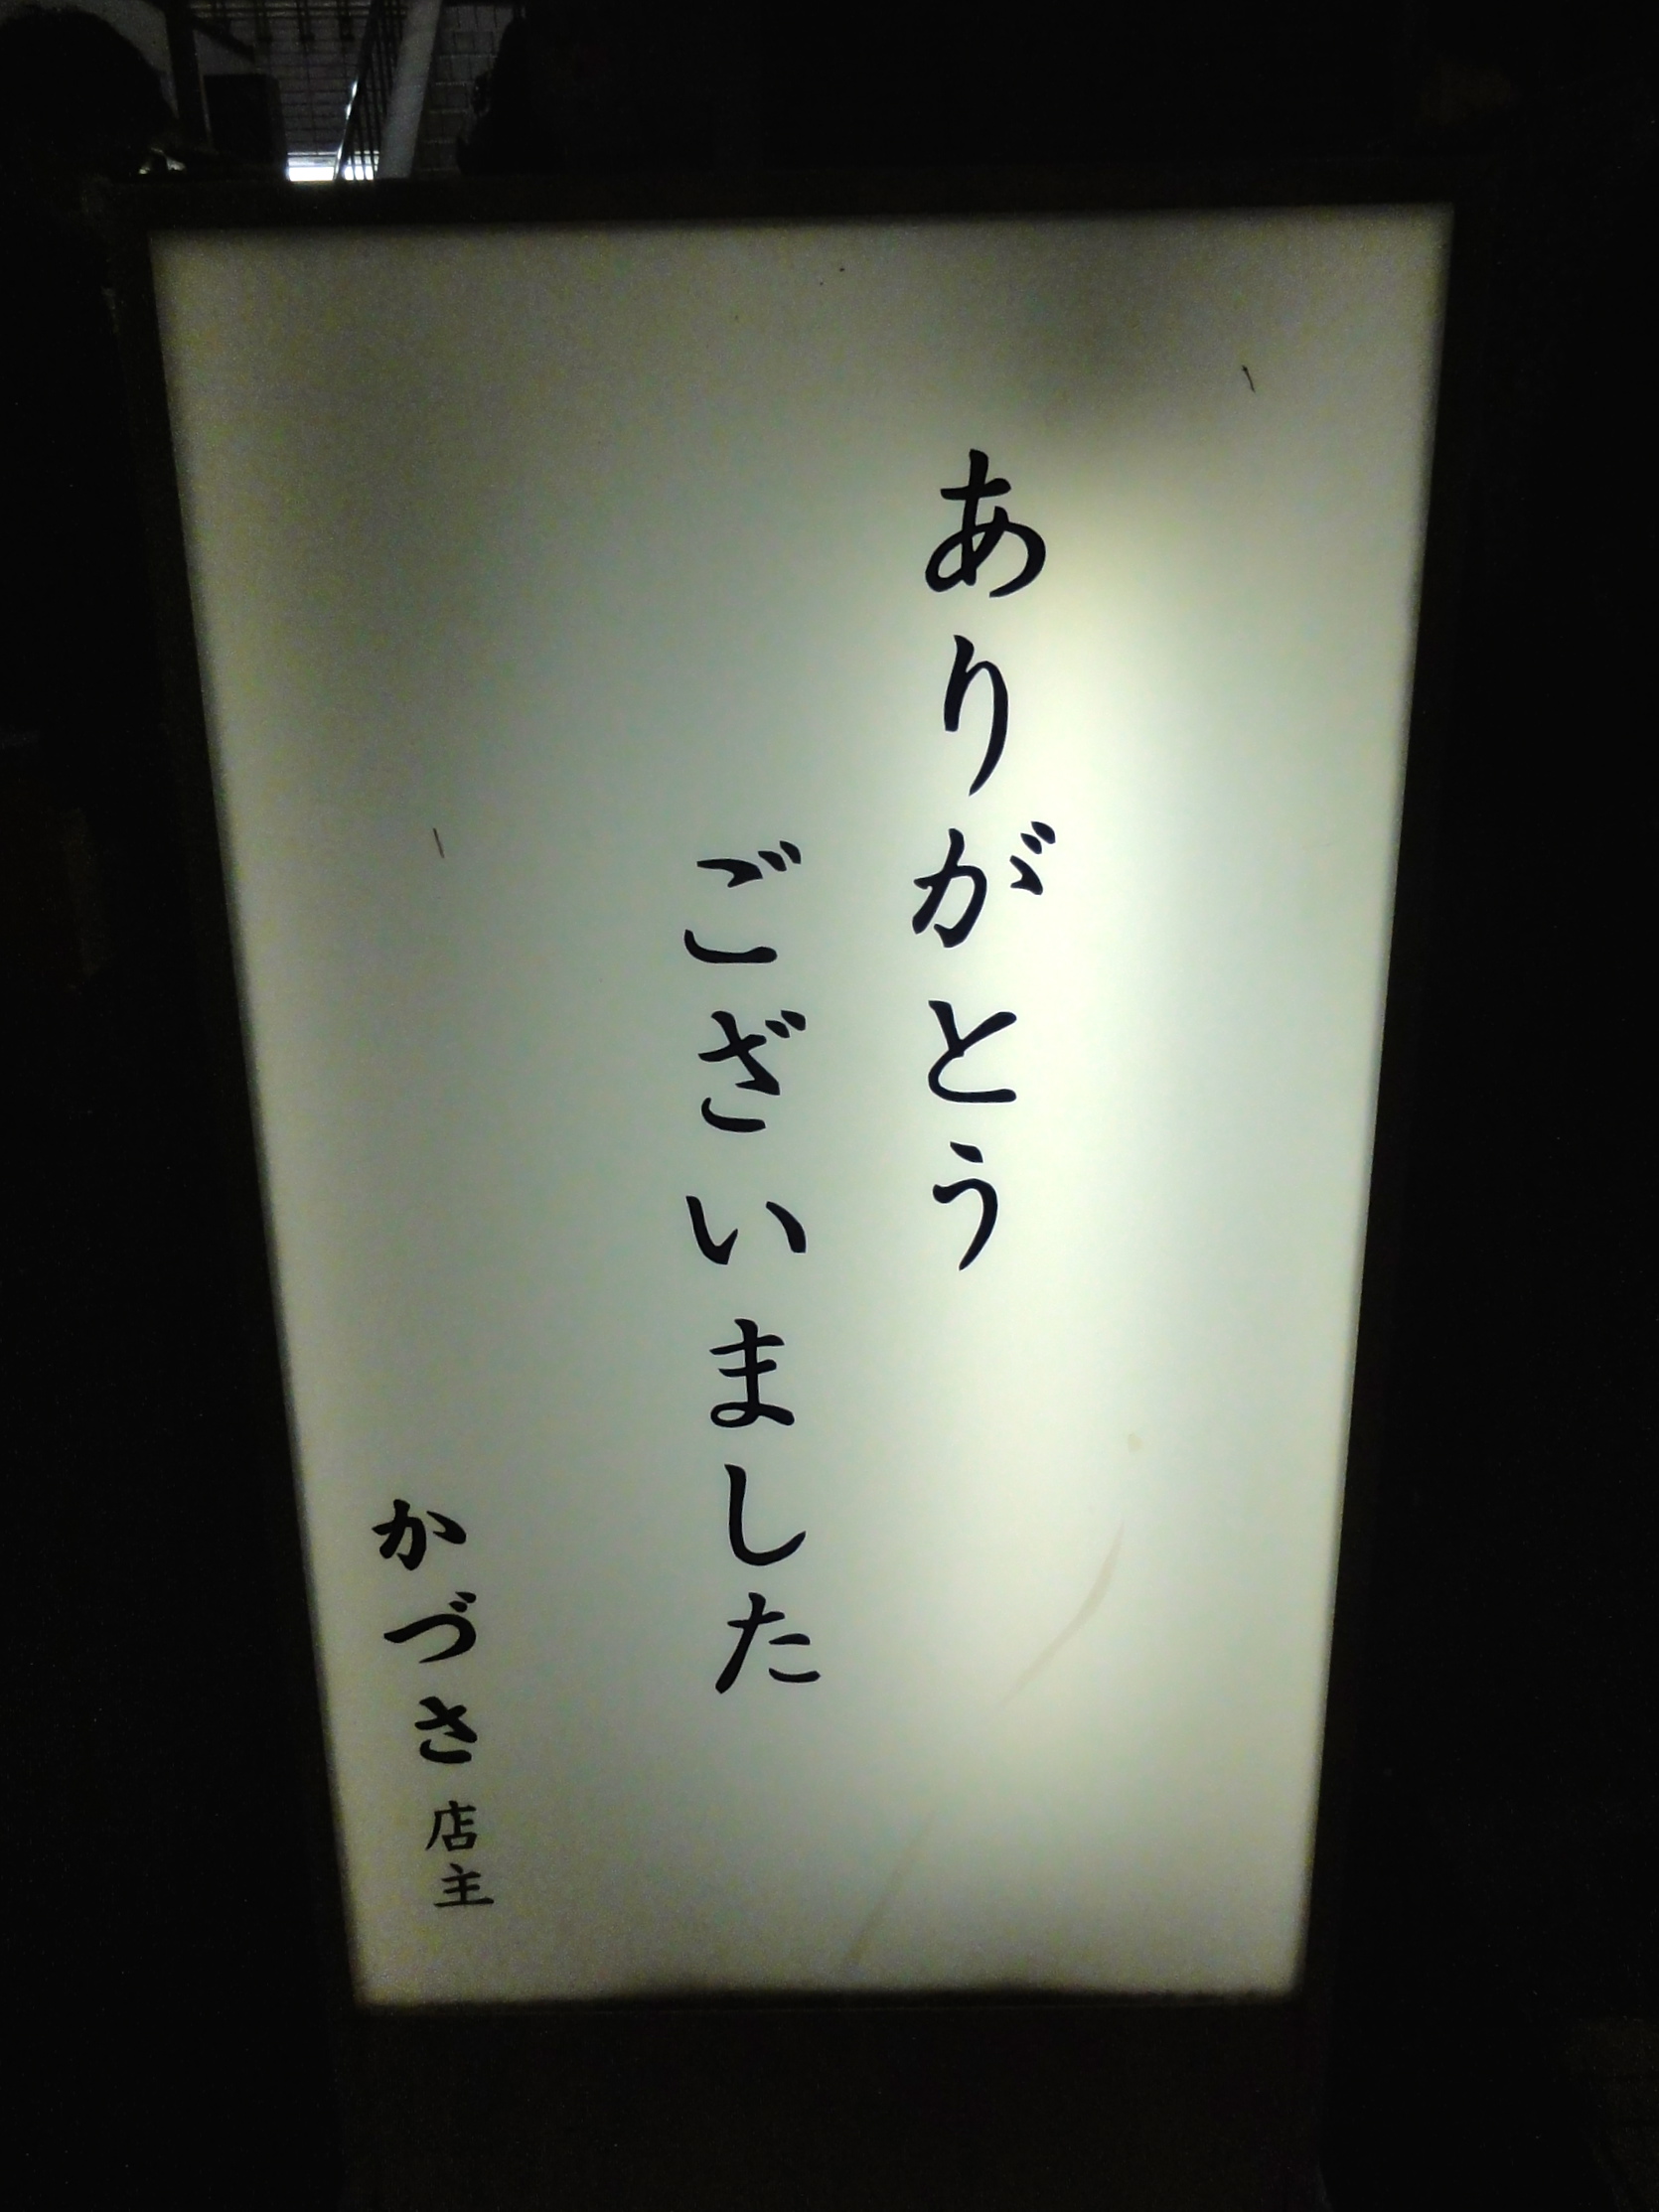 ありがとう
ございました
かづさ 店主